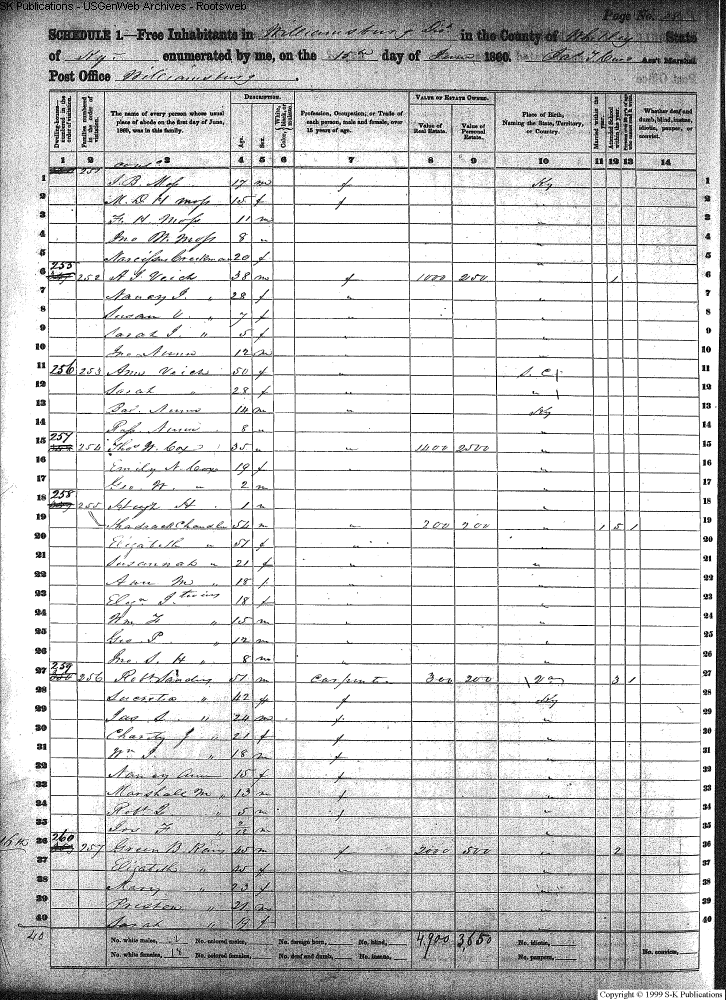 SK Publications - USGenWeb Archives - Rootsweb
Page No.
SCHEDULE 1.—Free Inhabitants in Williamsburg Dist in the County of Whitley State
of Ky. enumerated by me, on the 15th day of June 1860. Ass't Marshal
Post Office Williamsburg
DESCRIPTION. VALUE OF ESTATE OWNED.
Dwelling-houses—numbered in the order of visitation. Families numbered in the order of visitation. The name of every person whose usual place of abode on the first day of June, 1860, was in this family. Age. Sex. Color, White, black, or mulatto. Profession, Occupation, or Trade of each person, male and female, over 15 years of age. Value of Real Estate. Value of Personal Estate. Place of Birth, Naming the State, Territory, or Country. Married within the year. Attended School within the year. Whether deaf and dumb, blind, insane, idiotic, pauper, or convict.
1 2 3 4 5 6 7 8 9 10 11 12 13 14
1 J. B. Moss 17 m f Ky 1
2 M. D. H Moss 15 f f 2
3 F. H. Moss 11 m 3
4 Jno W. Moss 8 " 4
5 Narcissus Creekmore 20 f 5
6 253 252 A J Veich 38 m f 1000 250 " 1 6
7 Nancy J. " 28 f " " 7
8 Susan V. " 7 f " " 8
9 Sarah J. " 5 f " " 9
10 Jno Nunn 12 m " 10
11 256 253 Ann Veich 50 f " S. C 11
12 Sarah " 28 f " " 12
13 Nunn 14 m " Ky 13
14 Nunn 8 " " 14
15 257 254 Thos W. Cox 35 " " 1400 2500 " 15
16 Emily N. Cox 19 f " 16
17 Geo W. " 2 m " 17
18 258 255 Hugh H. 1 m " 18
19 Shadrack Chandler 54 m " 200 200 " 1 5 1 19
20 Elizabeth " 51 f " " 20
21 Susannah " 21 f " " 21
22 Ann M " 18 f " " 22
23 twins 18 f " " 23
24 Wm F " 15 m " " 24
25 Geo. P. " 12 m " " 25
26 Jno S. H " 8 m " 26
27 259 256 Robt Sanders 51 m Carpenter 300 200 Va 3 1 27
28 Lucretia " 42 f f Ky 28
29 Jas S. " 24 m f " 29
30 Charity J " 21 f f " 30
31 Wm J. " 18 m f " 31
32 Nancy Ann 15 f f " 32
33 Marshall M " 13 m f " 33
34 Robt L " 5 m f " 34
35 Jos F " 2/12 m " 35
36 260 257 Green B 45 m f 2000 500 " 2 36
37 Elizabeth " 45 f " " 37
38 Mary " 23 f " 38
39 Preston " 21 m " 39
40 Sarah " 19 f " 40
40
No. white males, No. colored males, No. foreign born, No. blind, 4,900 3,650 No. idiotic,
No. white females, 18 No. colored females, No. deaf and dumb, No. insane, No. paupers, No. convicts,
Copyright © 1999 S-K Publications